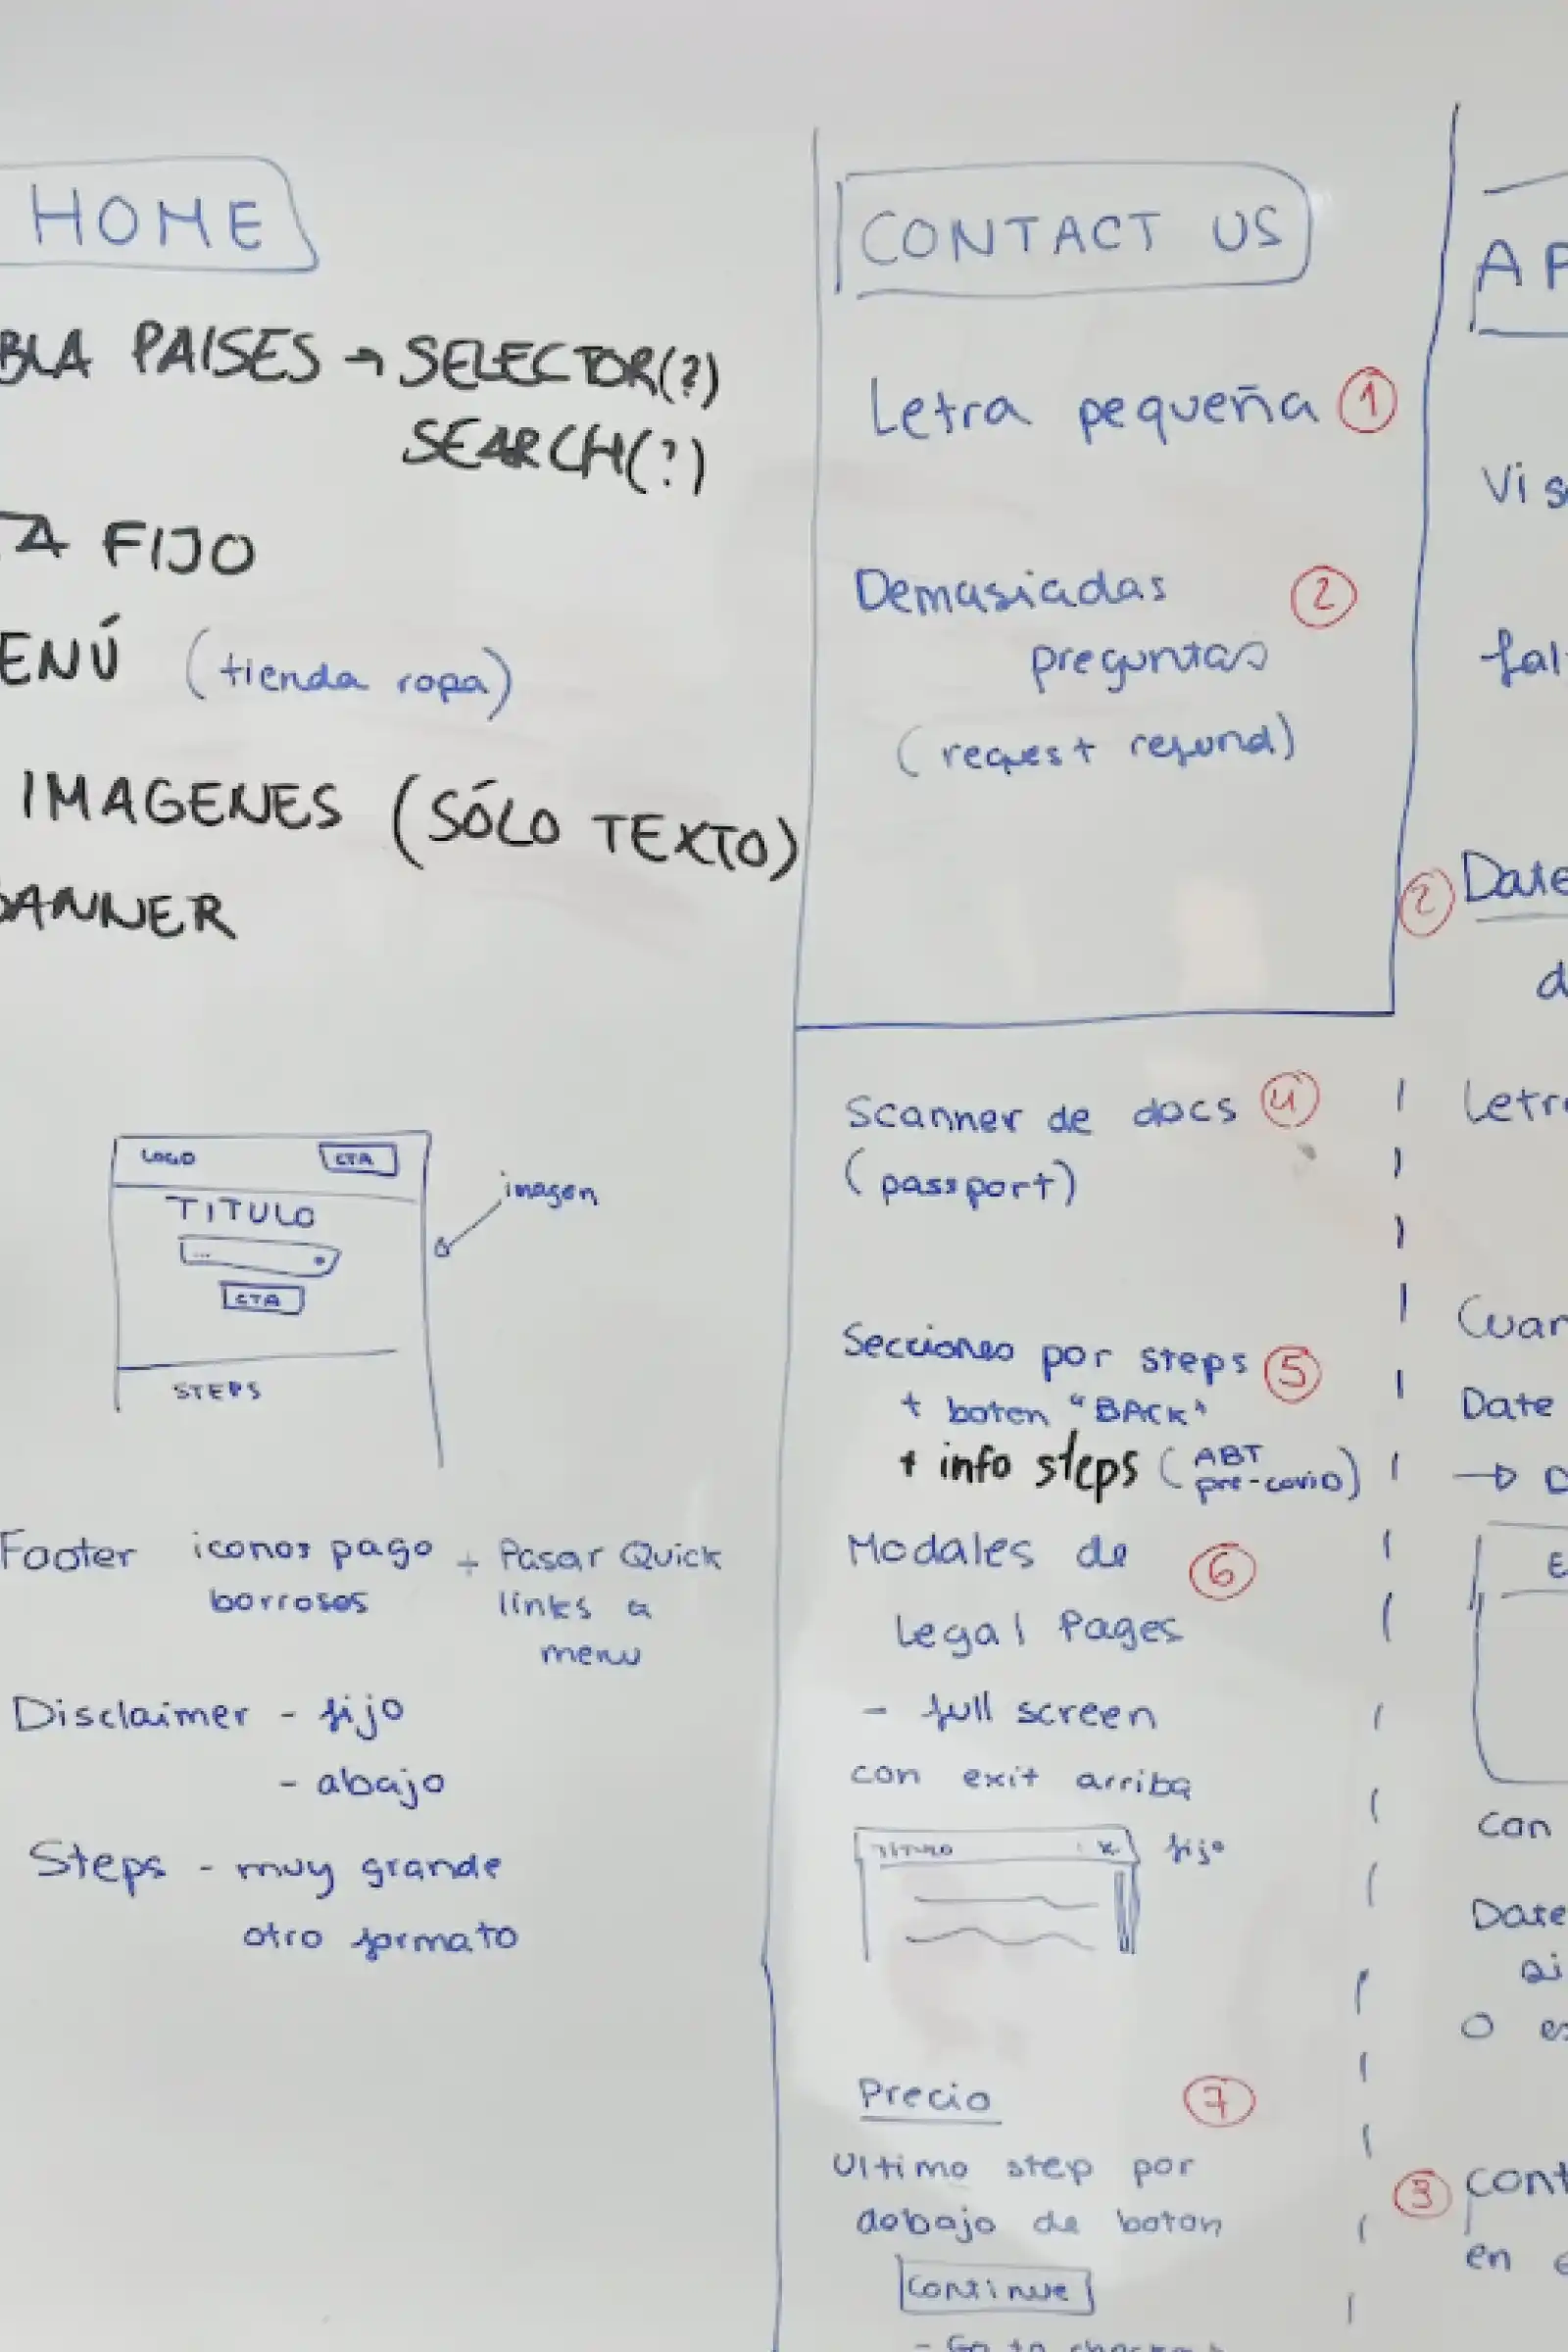 HOME
BLA PAISES → SELECTOR(?)
SEARCH(?)
TA FIJO
ENÚ (tienda ropa)
IMAGENES (SÓLO TEXTO)
BANNER
LOGO CTA
TITULO
...
CTA
STEPS
imagen
Footer iconos pago + Pasar Quick
borrosos links a
menu
Disclaimer - fijo
- abajo
Steps - muy grande
otro formato
CONTACT US
Letra pequeña 1
Demasiadas 2
preguntas
(request refund)
Scanner de docs 4
(passport)
Secciones por steps 5
+ boton "BACK"
+ info steps (ABT
pre-covid)
Modales de 6
Legal Pages
- full screen
con exit arriba
TITULO X fijo
Precio 7
Ultimo step por
debajo de boton
Continue
- Go to checkout
AP
Vis
fal
2 Date
d
Letr
Cuan
Date
→ D
E
con
Date
si
O es
3 cont
en e